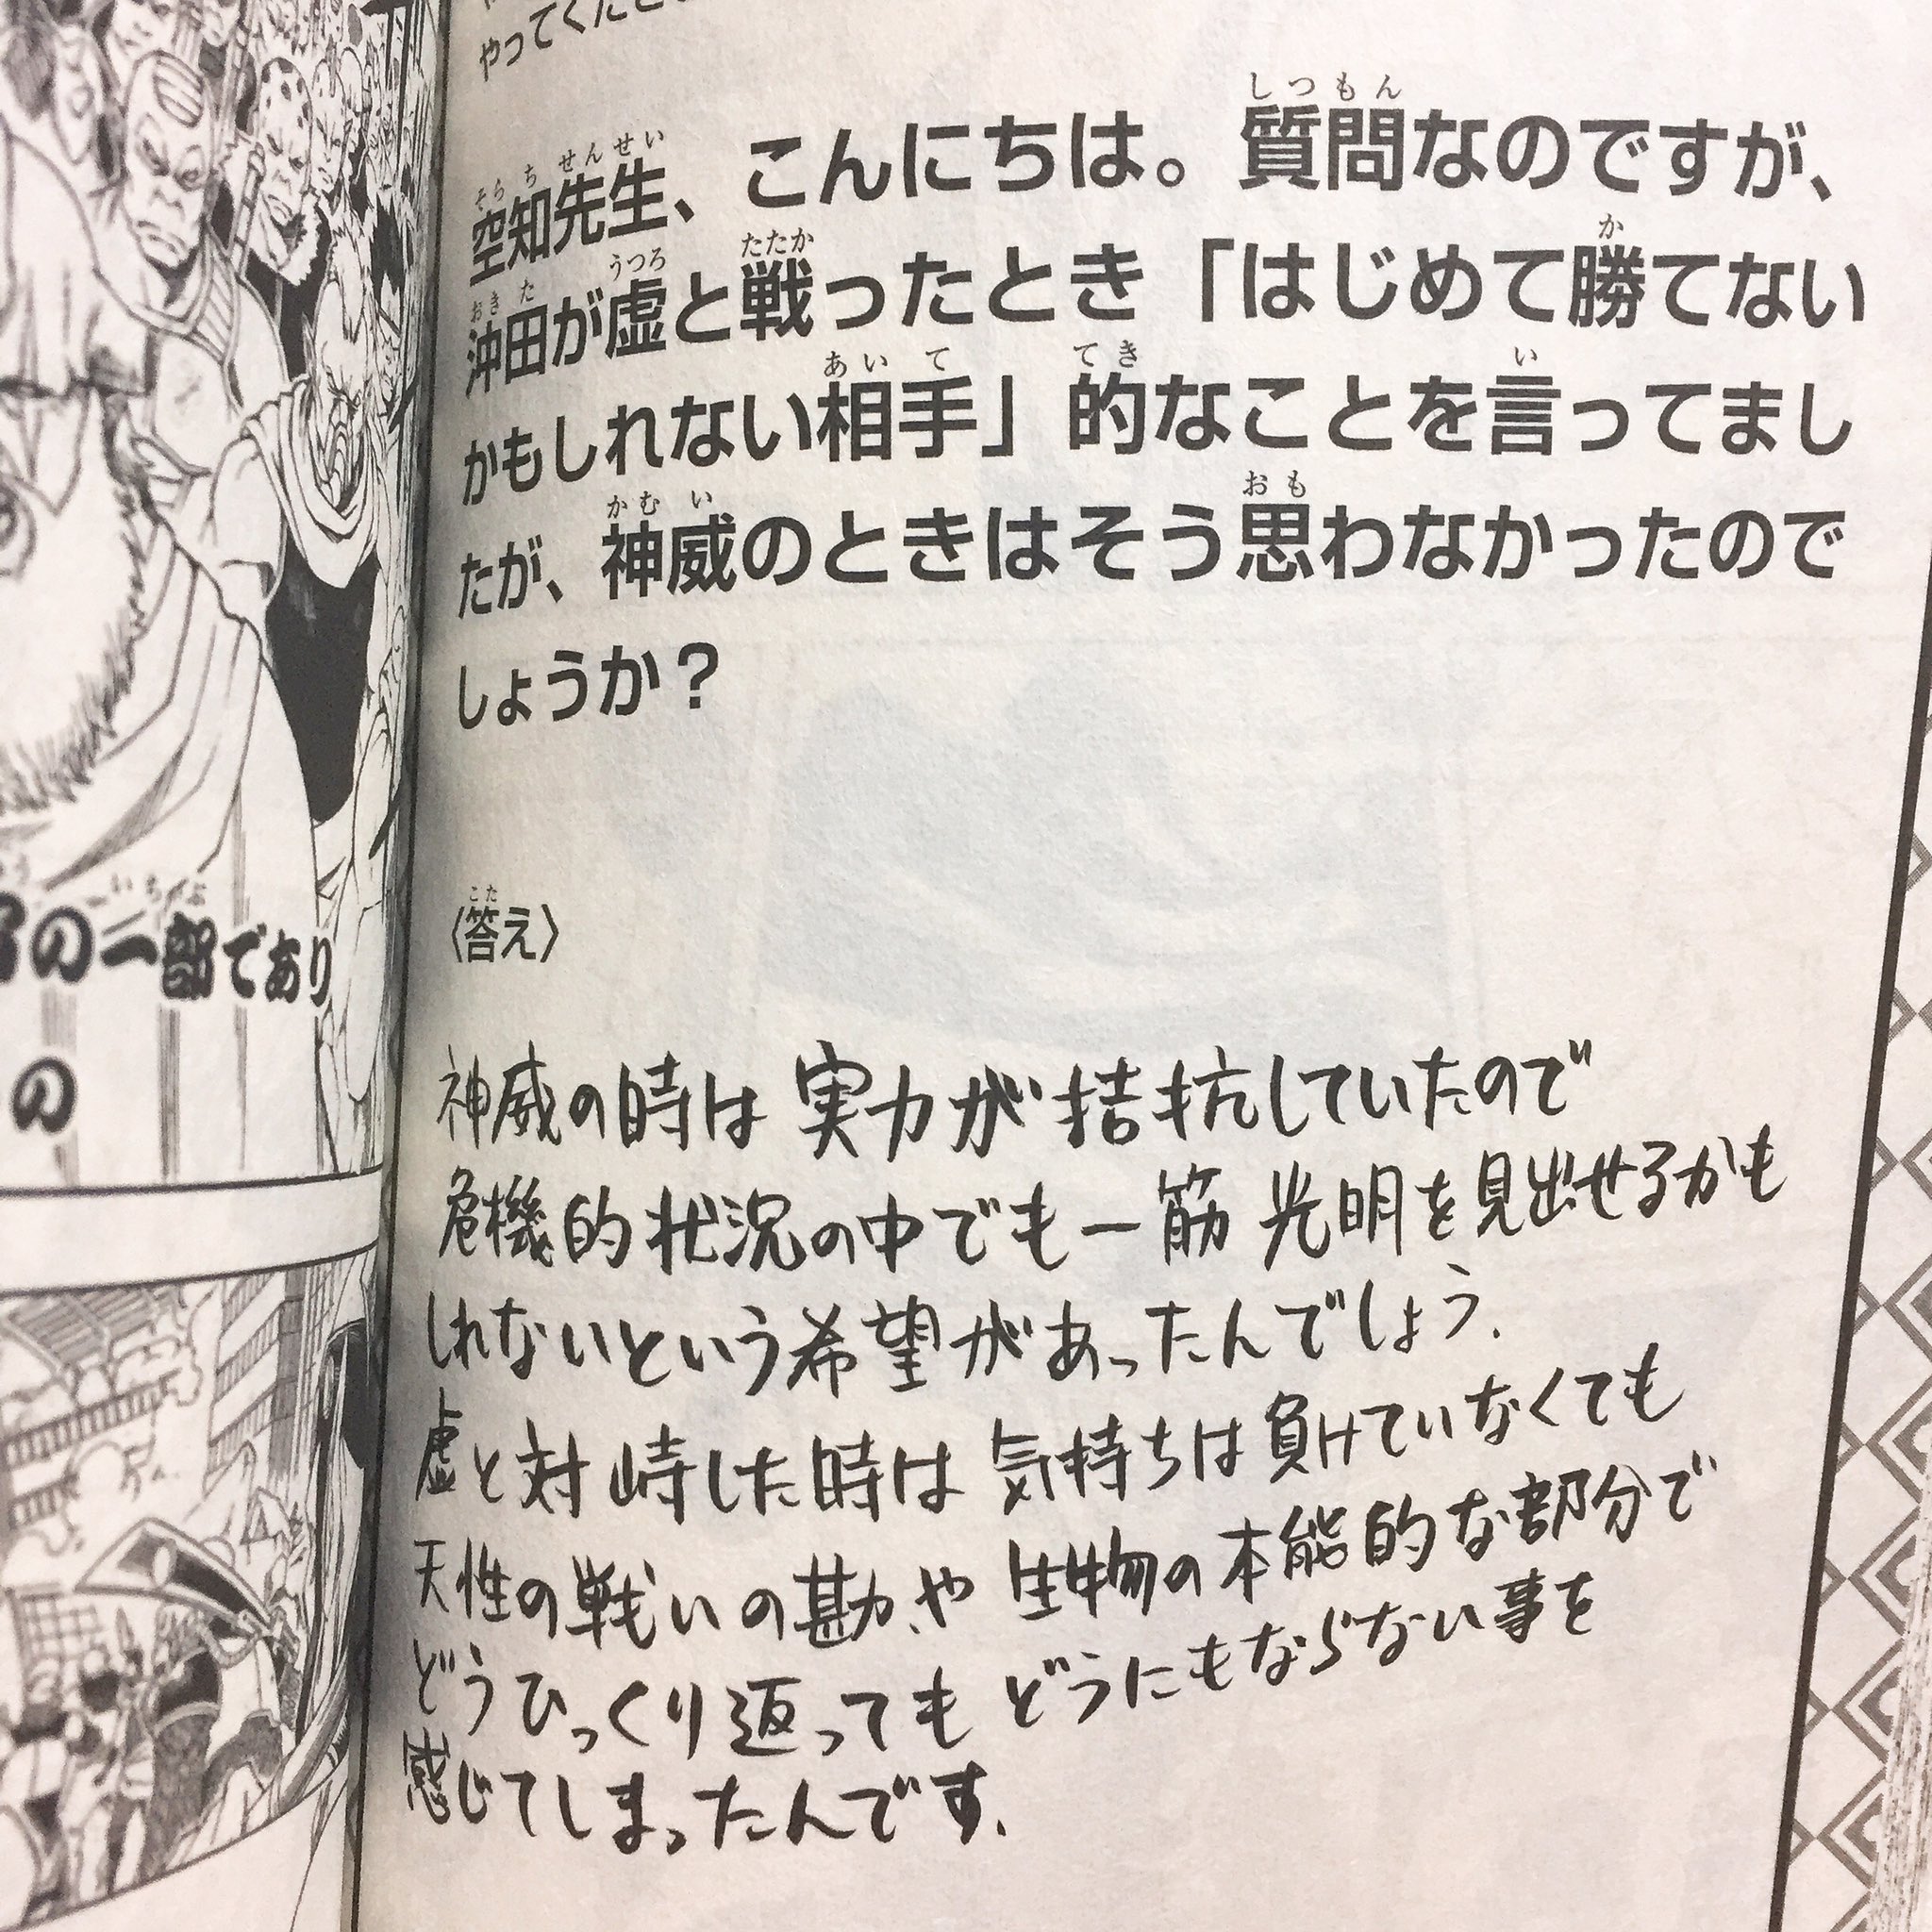 やってくださ
空知先生、こんにちは。質問なのですが、
沖田が虚と戦ったとき「はじめて勝てない
かもしれない相手」的なことを言ってまし
たが、神威のときはそう思わなかったので
しょうか？
〈答え〉
神威の時は実力が拮抗していたので
危機的状況の中でも一筋光明を見出せるかも
しれないという希望があったんでしょう.
虚と対峙した時は気持ちは負けていなくても
天性の戦いの勘や生物の本能的な部分で
どうひっくり返ってもどうにもならない事を
感じてしまったんです.
の一部であり
の